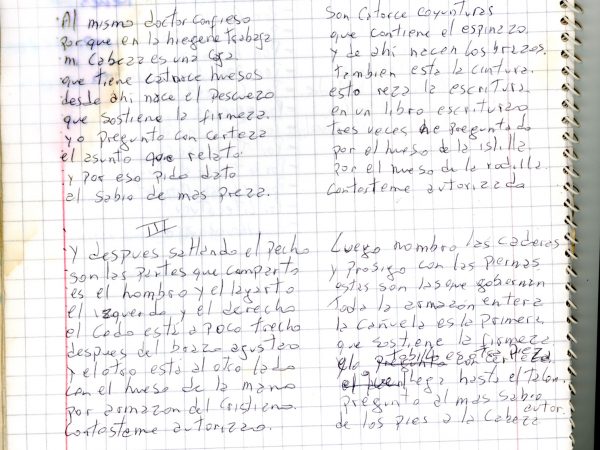 Al mismo doctor confieso
porque en la hiegene trabaga
mi Cabeza es una Caja
que tiene catroce huesos
desde ahi nace el Pescuezo
que sostiene la firmeza.
yo pregunto con certeza
el asunto que relato
y por eso pido dato
al sabio de mas preza.
III
Y despues saltando el pecho
son las partes que comparto
es el hombro y el lagarto
el izquerdo y el derecho
el Codo está a poco trecho
despues del brazo agustao
y el otro está al otro lado
con el hueso de la mano
por armazon del cristiano.
Contasteme autorizao.
Son Catorce coyunturas
que contiene el espinazo.
y de ahi nacen los brazos.
tambien esta la cintura.
esto reza la escritura
en un libro escriturao
tres veces he preguntado
por el hueso de la islilla.
por el hueso de la rodilla.
Contasteme autorizada
Luego nombro las caderas
y prosigo con las piernas
estas son las que gobiernan
toda la armazon entera
la Cañuela es la primera
que sostiene la firmeza
tobillo es otra pieza
llega hasta el talon
pregunto al mas sabio autor.
de los pies a la Cabeza